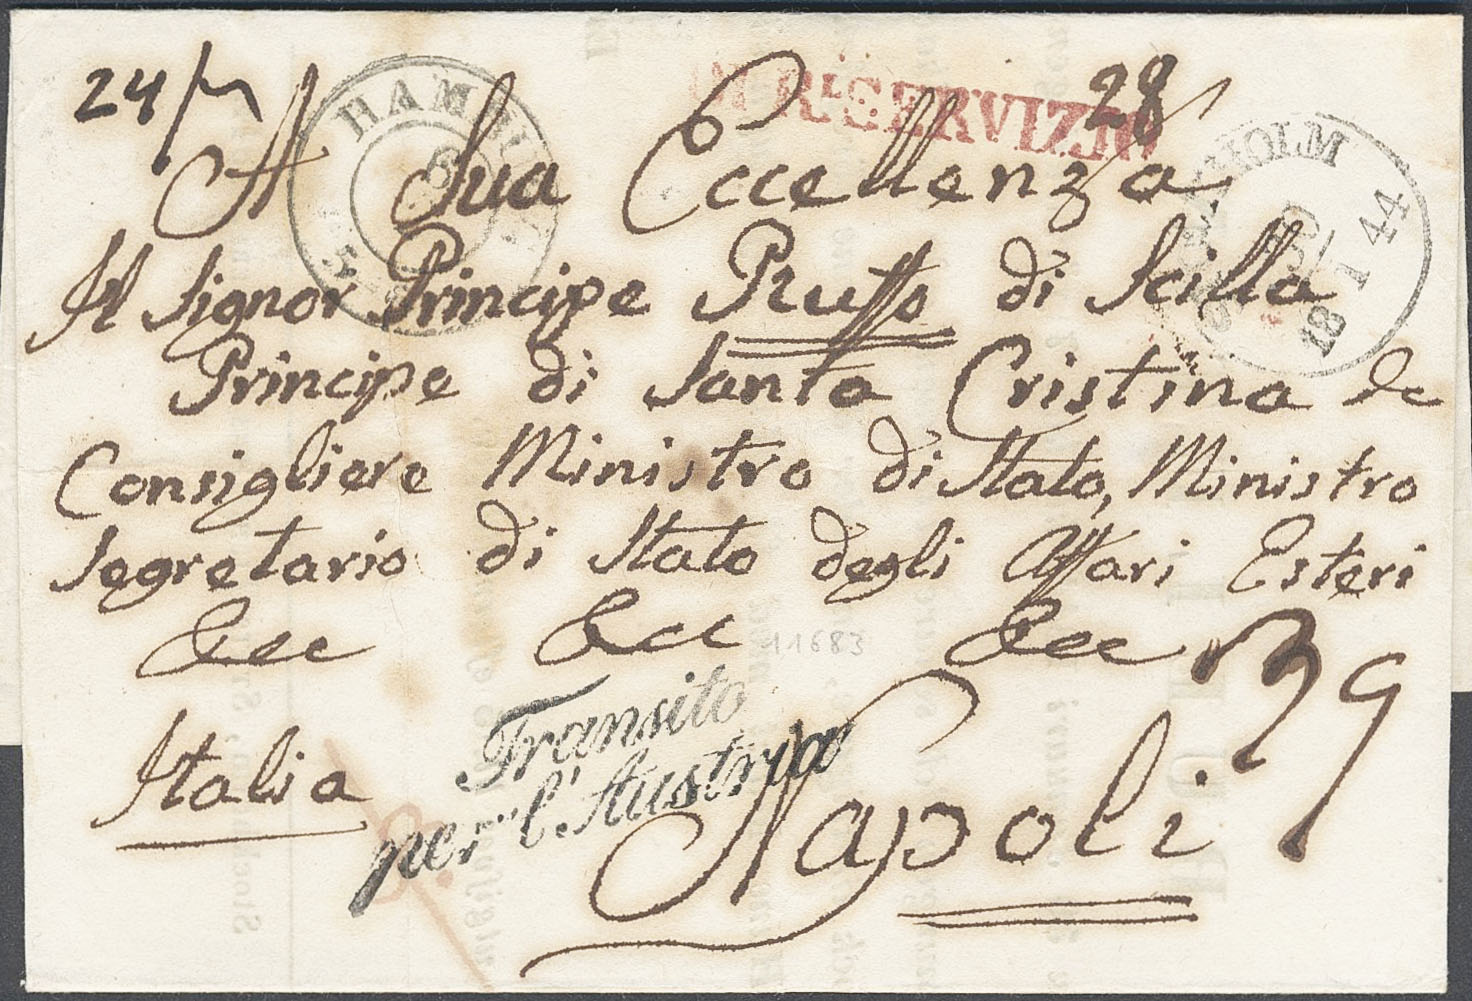 24/
28
HAMBU
Rl. SERVIZIO
HOLM
18 1 44
A Sua Eccellenza
Il Signor Principe Ruffo di Scilla
Principe di Santa Cristina &c
Consigliere Ministro di Stato, Ministro
Segretario di Stato degli Affari Esteri
&cc &cc &cc
11683
39
Transito
per l'Austria
Italia
Napoli